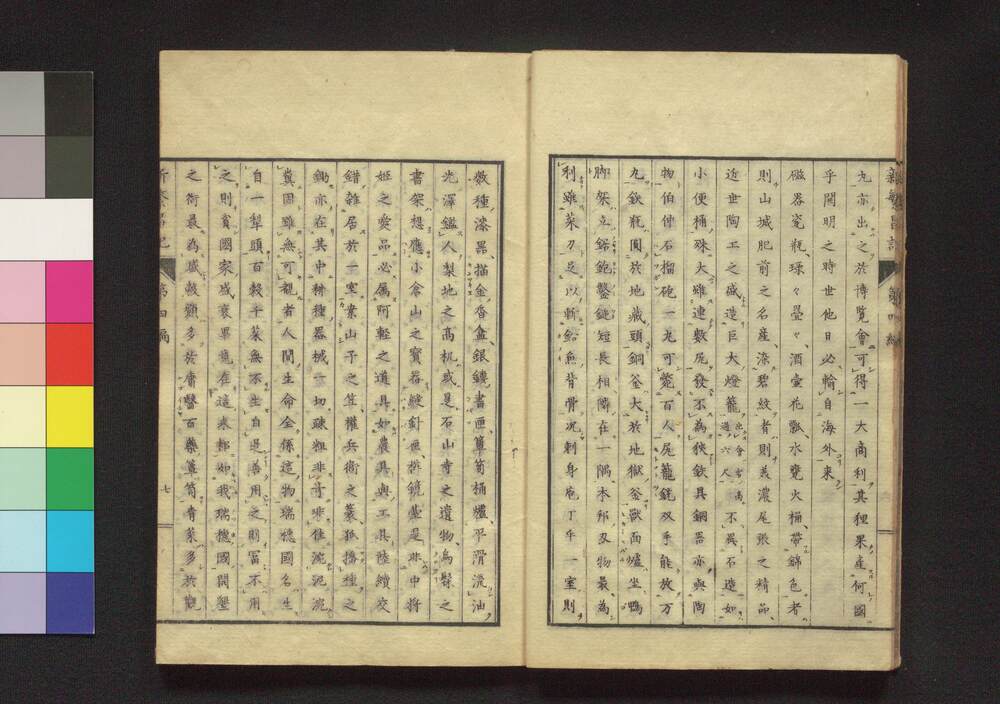 九亦出之於博覽會可得一大商利其種果產何國
乎開明之時世他日必輸自海外來
磁器瓷瓶璆々疊々酒壷花瓢水甕火桶帶錦色者
則山城肥前之名産染碧紋者則美濃尾張之精品
近世陶工之盛造巨大燈籠出會者高過六尺不異不造如
小便桶殊大雖連數尻發不為狹鉄具銅器亦與陶
物伯仲石榴砲一丸可斃百人尻籠銃双手能放万
九鉄瓶圓於地藏頭銅釜大於地獄釜獸面爐坐鴨
脚架立鋸鉋鑿鎚短長相隣在一隅本邦刄物最為
利雖菜刀足以斬鮐魚背骨况刺身庖丁乎一室則
數種漆器描金香盒銀鏤書画簟笥桶爐平滑流油
光澤鑑人梨地之高机或是石山寺之遺物烏髹之
書架想應小倉山之寶器縫針匣拼鏡臺是非中將
姫之愛品必属阿軽之道具如農具與工具陸續交
錯雜居於一室素山予之笠權兵衛之簑狐播種之
鋤亦在其中耕種器械一切疎粗非奇非佳泥泥涴
糞固雖無可觀者人間生命全係這物瑞穗國名生
自一犁頭百穀千菜無不生自是善用之則冨不用
之則貧國家盛衰畢竟在這裏都如我瑞穗國開墾
之術最為盛穀顆多於庸醫百藥簟笥青菜多於
新繁昌記 第四編 七